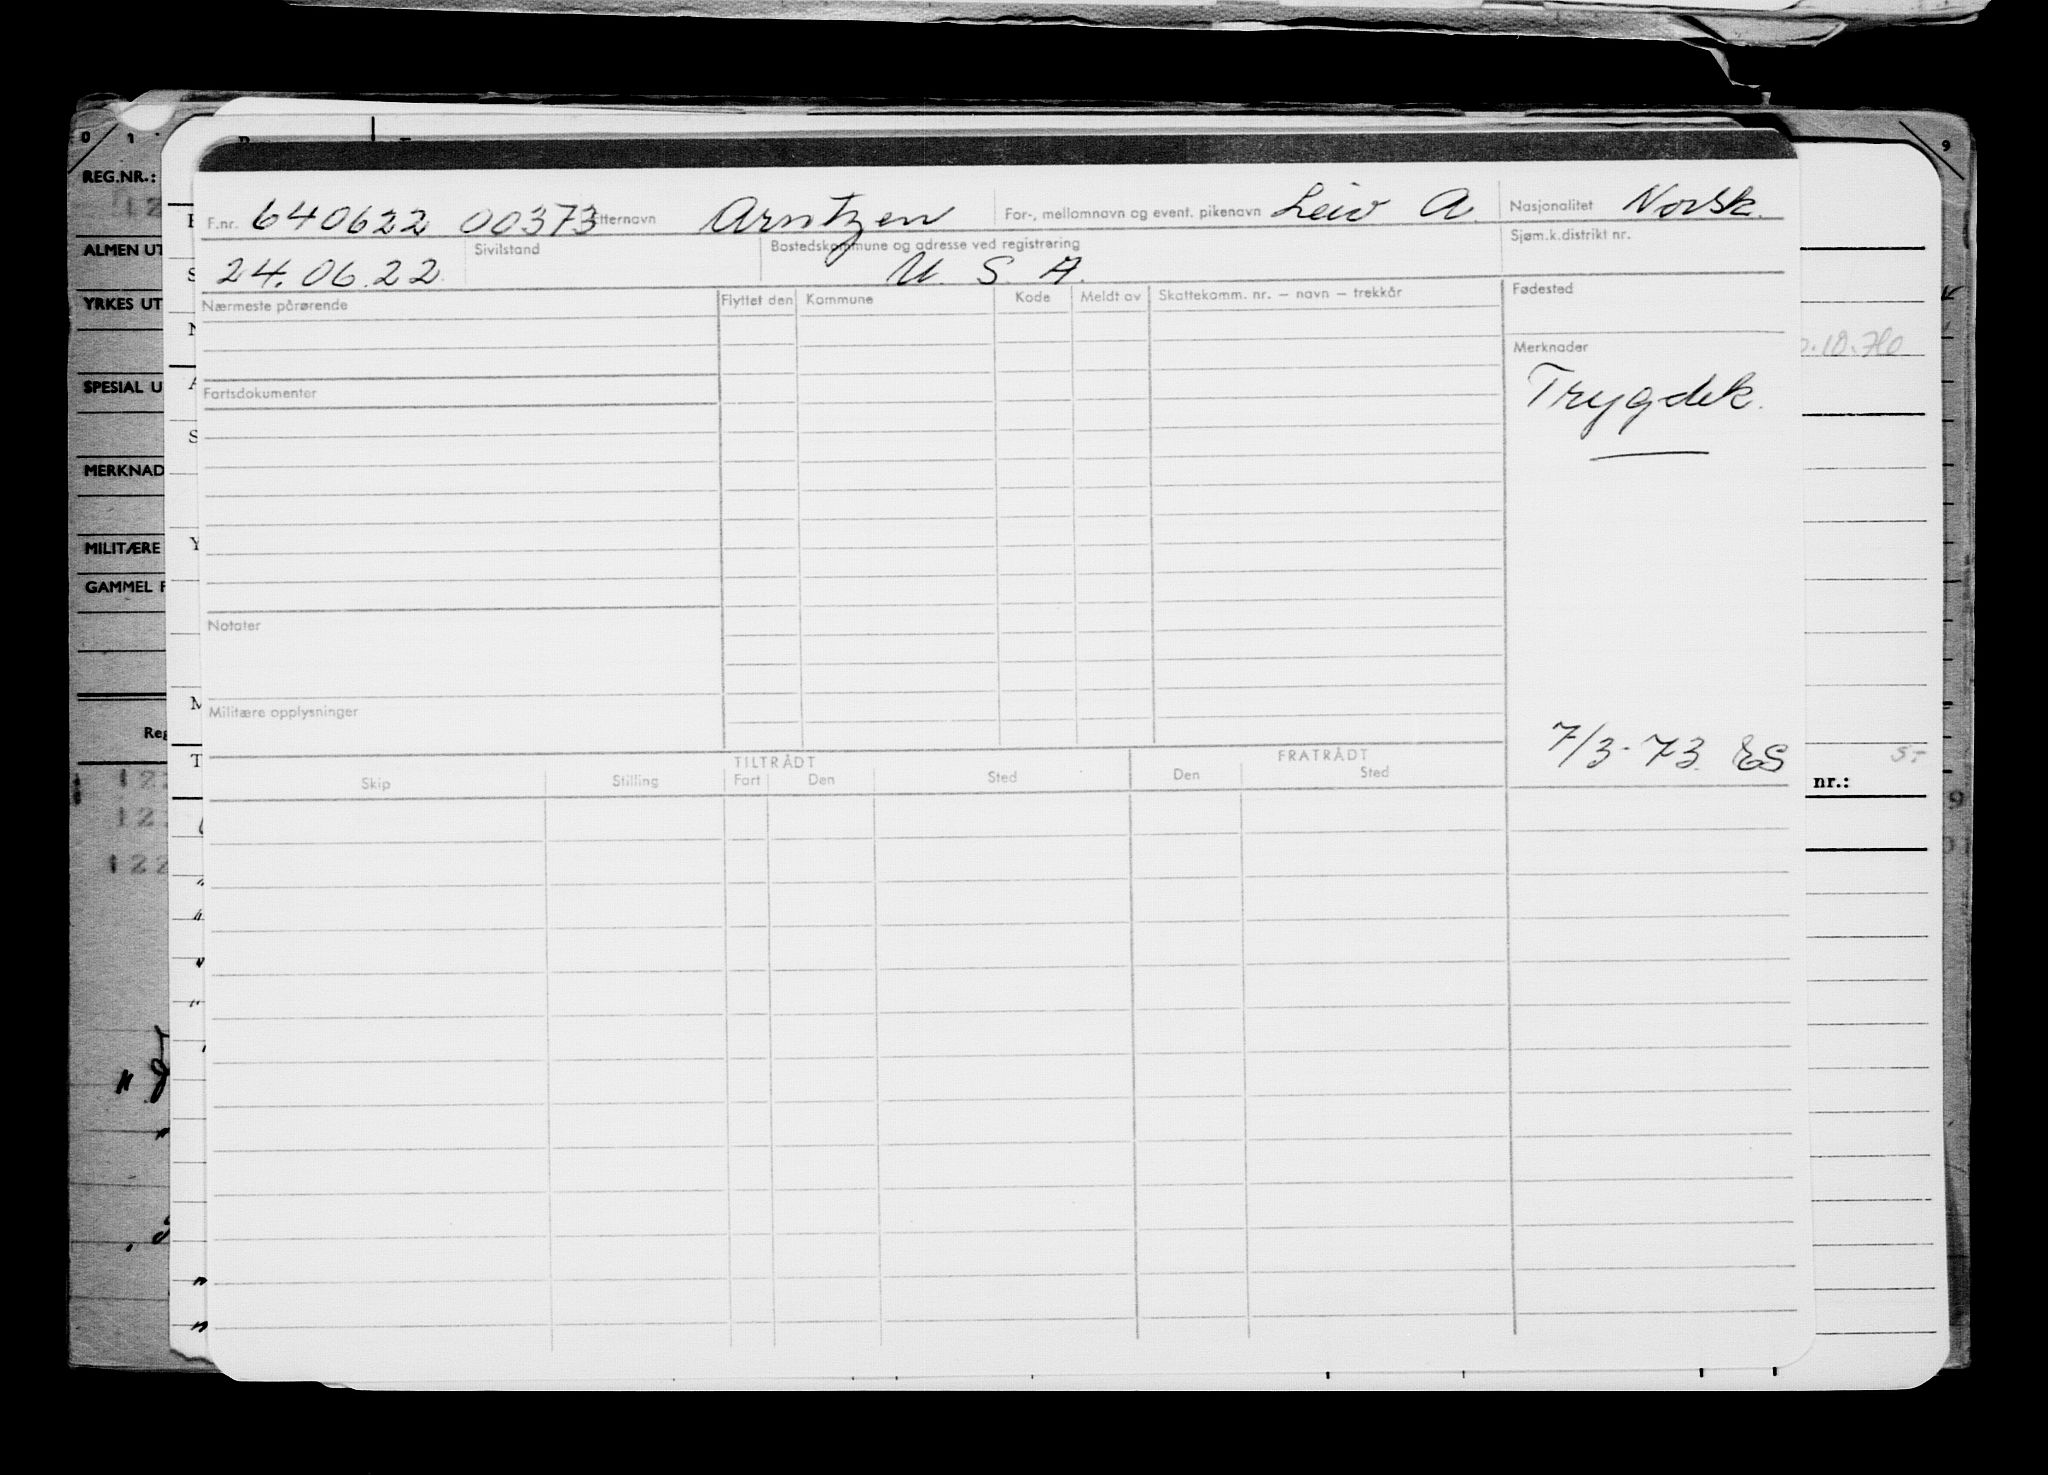 0 1 9
REG.NR.:
F.nr. 640622 00373 Etternavn Arntzen For-, mellomnavn og event. pikenavn Leiv A. Nasjonalitet Norsk.
ALMEN UT
24.06.22. Sivilstand Bostedskommune og adresse ved registrering U. S. A. Sjøm.k.distrikt nr.
YRKES UT
Nærmeste pårørende Flyttet den Kommune Kode Meldt av Skattekomm. nr. – navn – trekkår Fødested
Merknader
SPESIAL U
Fartsdokumenter Trygdek.
MERKNAD
MILITÆRE
GAMMEL F
Notater
Militære opplysninger
Reg
7/3-73 ES
TILTRÅDT FRATRÅDT
Skip Stilling Fart Den Sted Den Sted
nr.:
122